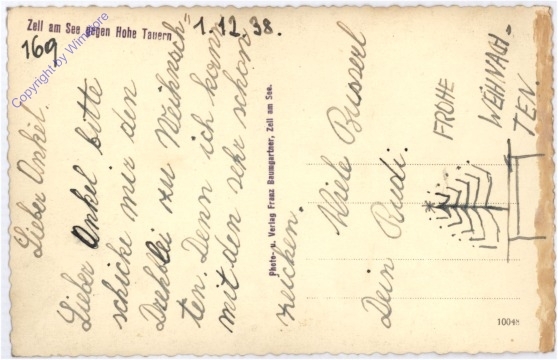 Zell am See gegen Hohe Tauern
169
1.12.38.
Copyright by Winstore
Lieber Onkel.
Lieber Onkel bitte
schicke mir den
Drehblei zu Weihnach
ten. Denn ich kann
mit den sehr schön
zeichen.
Viele Busserl
Dein Rudi.
FROHE
WEIHNACH-
TEN.
Photo- u. Verlag Franz Baumgartner, Zell am See.
10048